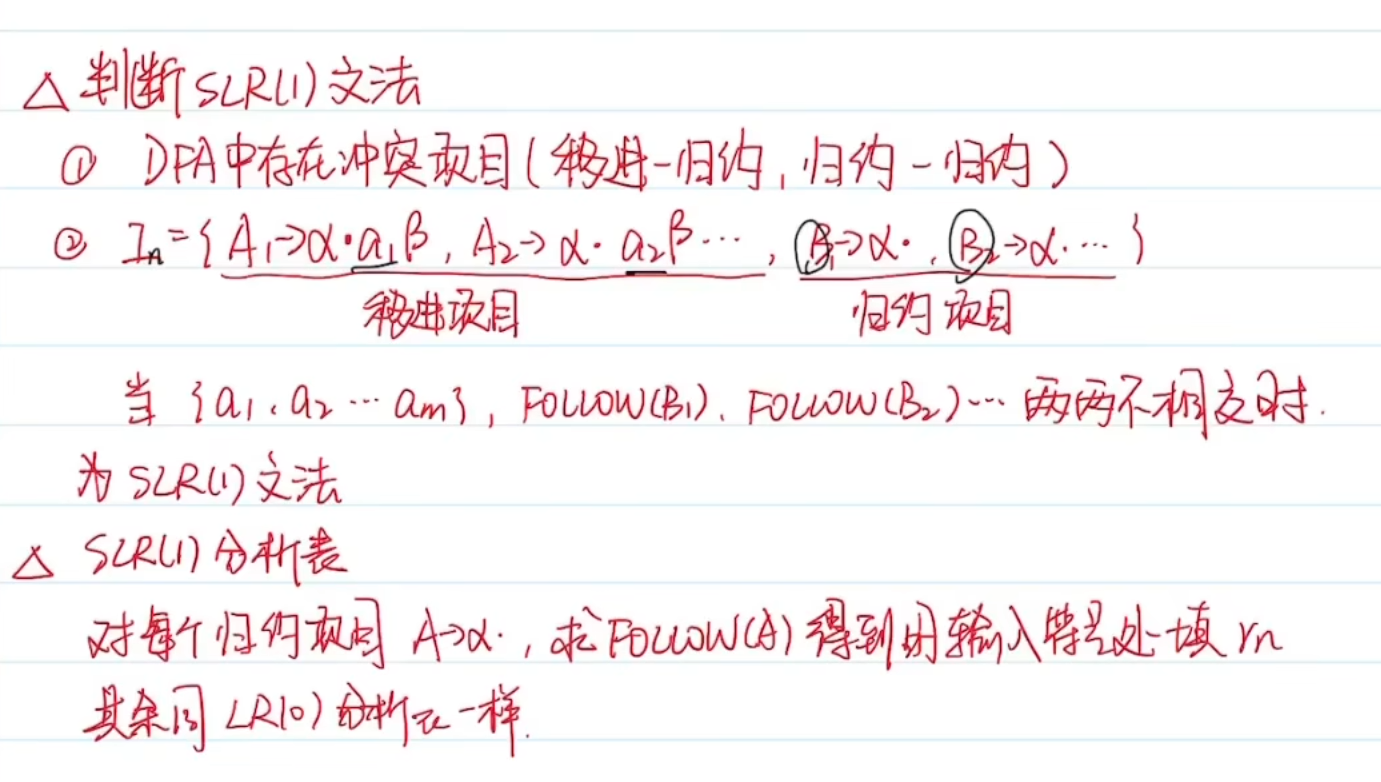 △ 判断SLR(1)文法
① DFA中存在冲突项目(移进-归约,归约-归约)
② In={A₁→α·a₁β, A₂→α·a₂β…, B₁→α·, B₂→α·…}
移进项目 归约项目
当{a₁,a₂…am}, FOLLOW(B₁),FOLLOW(B₂)…两两不相交时.
为SLR(1)文法
△ SLR(1)分析表
对每个归约项目 A→α·,求FOLLOW(A)得到的输入符号处填rn
其余同LR(0)分析表一样.